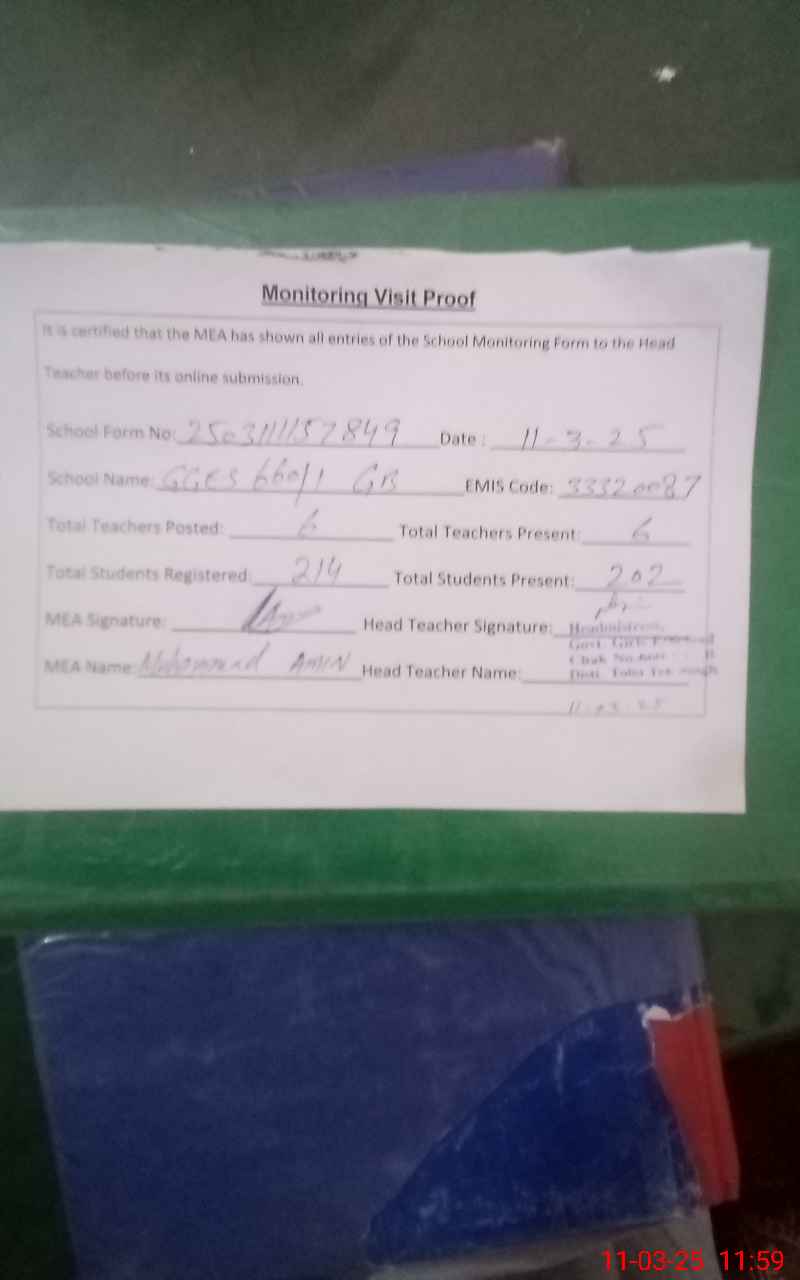 Monitoring Visit Proof
It is certified that the MEA has shown all entries of the School Monitoring Form to the Head
Teacher before its online submission.
School Form No: 2503111157849 Date : 11-3-25
School Name: GGES 660/1 GB EMIS Code: 33320087
Total Teachers Posted: 6 Total Teachers Present: 6
Total Students Registered: 214 Total Students Present: 202
MEA Signature: Head Teacher Signature:
Headmistress,
Govt. Girls
MEA Name: Muhammad AMIN Head Teacher Name:
Chak No.
Distt. Toba Tek Singh
11-03-25
11-03-25 11:59